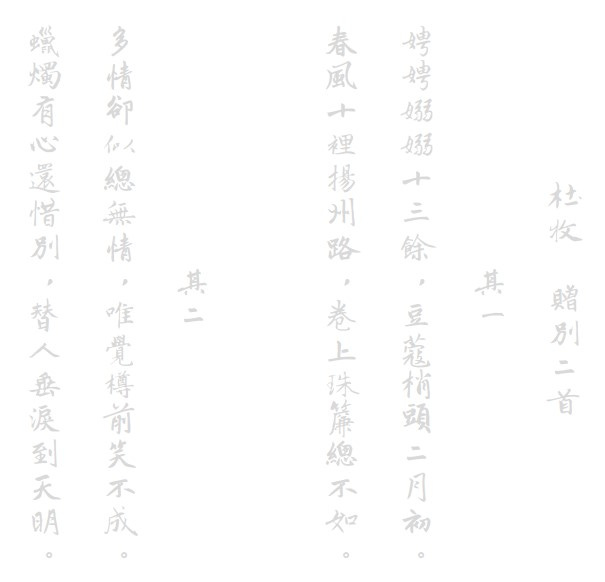 杜牧 贈別二首
其一
娉娉嫋嫋十三餘，豆蔻梢頭二月初。
春風十裡揚州路，卷上珠簾總不如。
其二
多情卻似總無情，唯覺樽前笑不成。
蠟燭有心還惜別，替人垂淚到天明。